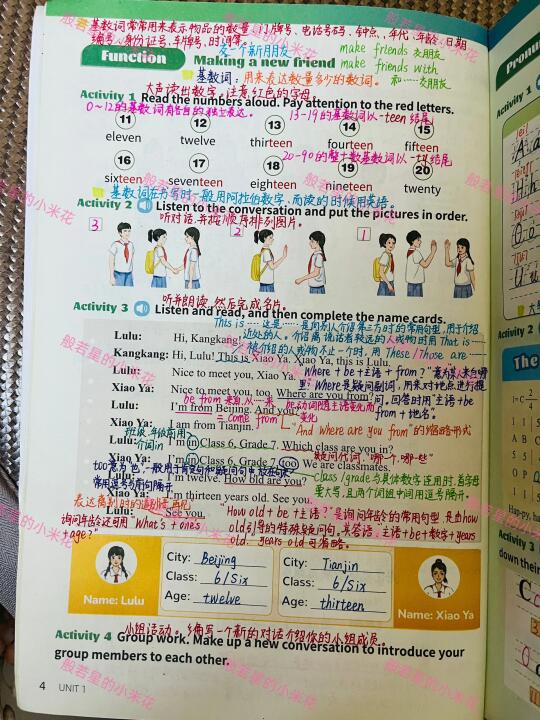 基数词常常用来表示物品的数量、门牌号、电话号码、钟点、年代、年龄、日期
编号、身份证号、车牌号、时间等。
交一个新朋友
make friends 交朋友
Function
Making a new friend
make friends with
和……交朋友
基数词：用来表达数量多少的数词。
大声读出数字。注意红色的字母。
Activity 1 Read the numbers aloud. Pay attention to the red letters.
0~12的基数词有各自的独立表达。
13-19的基数词以-teen结尾
11 12 13 14 15
eleven twelve thirteen fourteen fifteen
20-90的整十数基数词以-ty结尾
16 17 18 19 20
sixteen seventeen eighteen nineteen twenty
基数词在书写时一般用阿拉伯数字，而读的时候用英语。
Activity 2 Listen to the conversation and put the pictures in order.
听对话，并按顺序排列图片。
3 2 1
听并朗读，然后完成名片。
Activity 3 Listen and read, and then complete the name cards.
This is …… 这是……是向别人介绍第三方时的常用句型，用于介绍
Lulu: Hi, Kangkang!
近处的人。介绍离说话者较远的人或物时用 That is ……
介绍的人或物不止一个时，用 These / Those are ……
Kangkang: Hi, Lulu! This is Xiao Ya. Xiao Ya, this is Lulu.
Lulu: Nice to meet you, Xiao Ya.
"Where + be + 主语 + from?" 意为"某人来自哪
里?" Where是疑问副词，用来对地点进行提
Xiao Ya: Nice to meet you, too. Where are you from?
问。回答时用"主语+be
from + 地名"。
be from 来自
be动词随主语变化而
变化
Lulu: I'm from Beijing. And you?
= come from
Xiao Ya: I am from Tianjin.
"And where are you from" 的省略形式
班级、年级前用
介词in
Lulu: I'm in Class 6, Grade 7. Which class are you in?
疑问代词"哪个，哪些"
Xiao Ya: I'm in Class 6, Grade 7, too. We are classmates.
Lulu: I'm twelve. How old are you?
class/grade与具体数字连用时，首字母
要大写，且两个词组中间用逗号隔开。
常用逗号与前句隔开
Xiao Ya: I'm thirteen years old. See you.
Lulu: See you.
"How old + be + 主语?" 是询问年龄的常用句型，是由how
old引导的特殊疑问句，其答语：主语+be+数字+years
old. years old可省略。
询问年龄还可用 "What's + one's
+age?"
City: Beijing
Class: 6/Six
Age: twelve
Name: Lulu
City: Tianjin
Class: 6/Six
Age: thirteen
Name: Xiao Ya
小组活动。编写一个新的对话介绍你的小组成员。
Activity 4 Group work. Make up a new conversation to introduce your
group members to each other.
4 UNIT 1
般若星的小米花